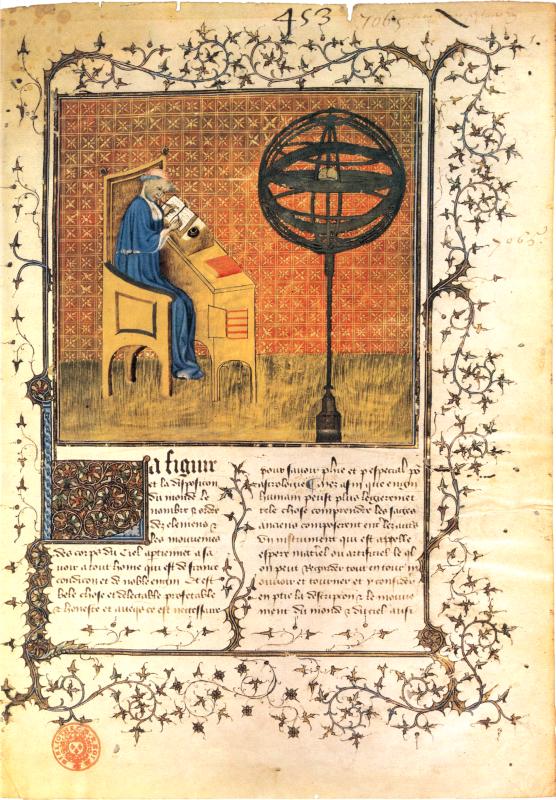 453
7065
7065
La figure
et la disposicion
du monde le
nombre & ordre
des elemens &
les mouvemens
des corps du ciel aptiennet a sa
voir a tout home qui est de franc
condicion et de noble engin Et est
bele chose et delectable profetable
& honeste et avecqs ce est necessaire
pour savoir philosophie et p especial po
astrologie Mes afin que engin
humain peust plus legierement
tele chose comprendre les sages
anciens composerent entre les autres
un instrument qui est appelle
espere materiel ou artificiel le ql
on peut regarder tout entour m
ouvoir et tourner et y considerer
en ptie la descripcion & le mouve
ment du monde & du ciel aussi